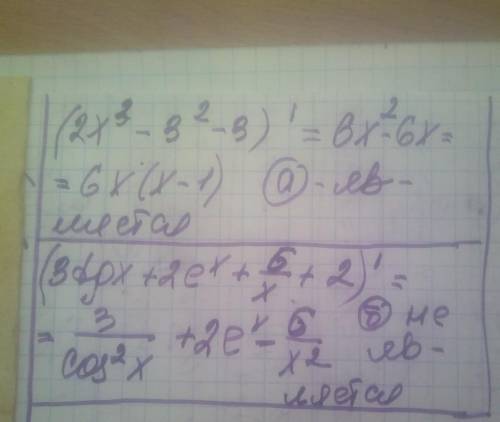 (2x³ - 3² - 3)' = 6x² - 6x =
= 6x(x - 1) а) - яв -
ляется
(3tgx + 2eˣ + 6/x + 2)' =
= 3/cos²x + 2eˣ - 6/x² б) не
яв -
ляется